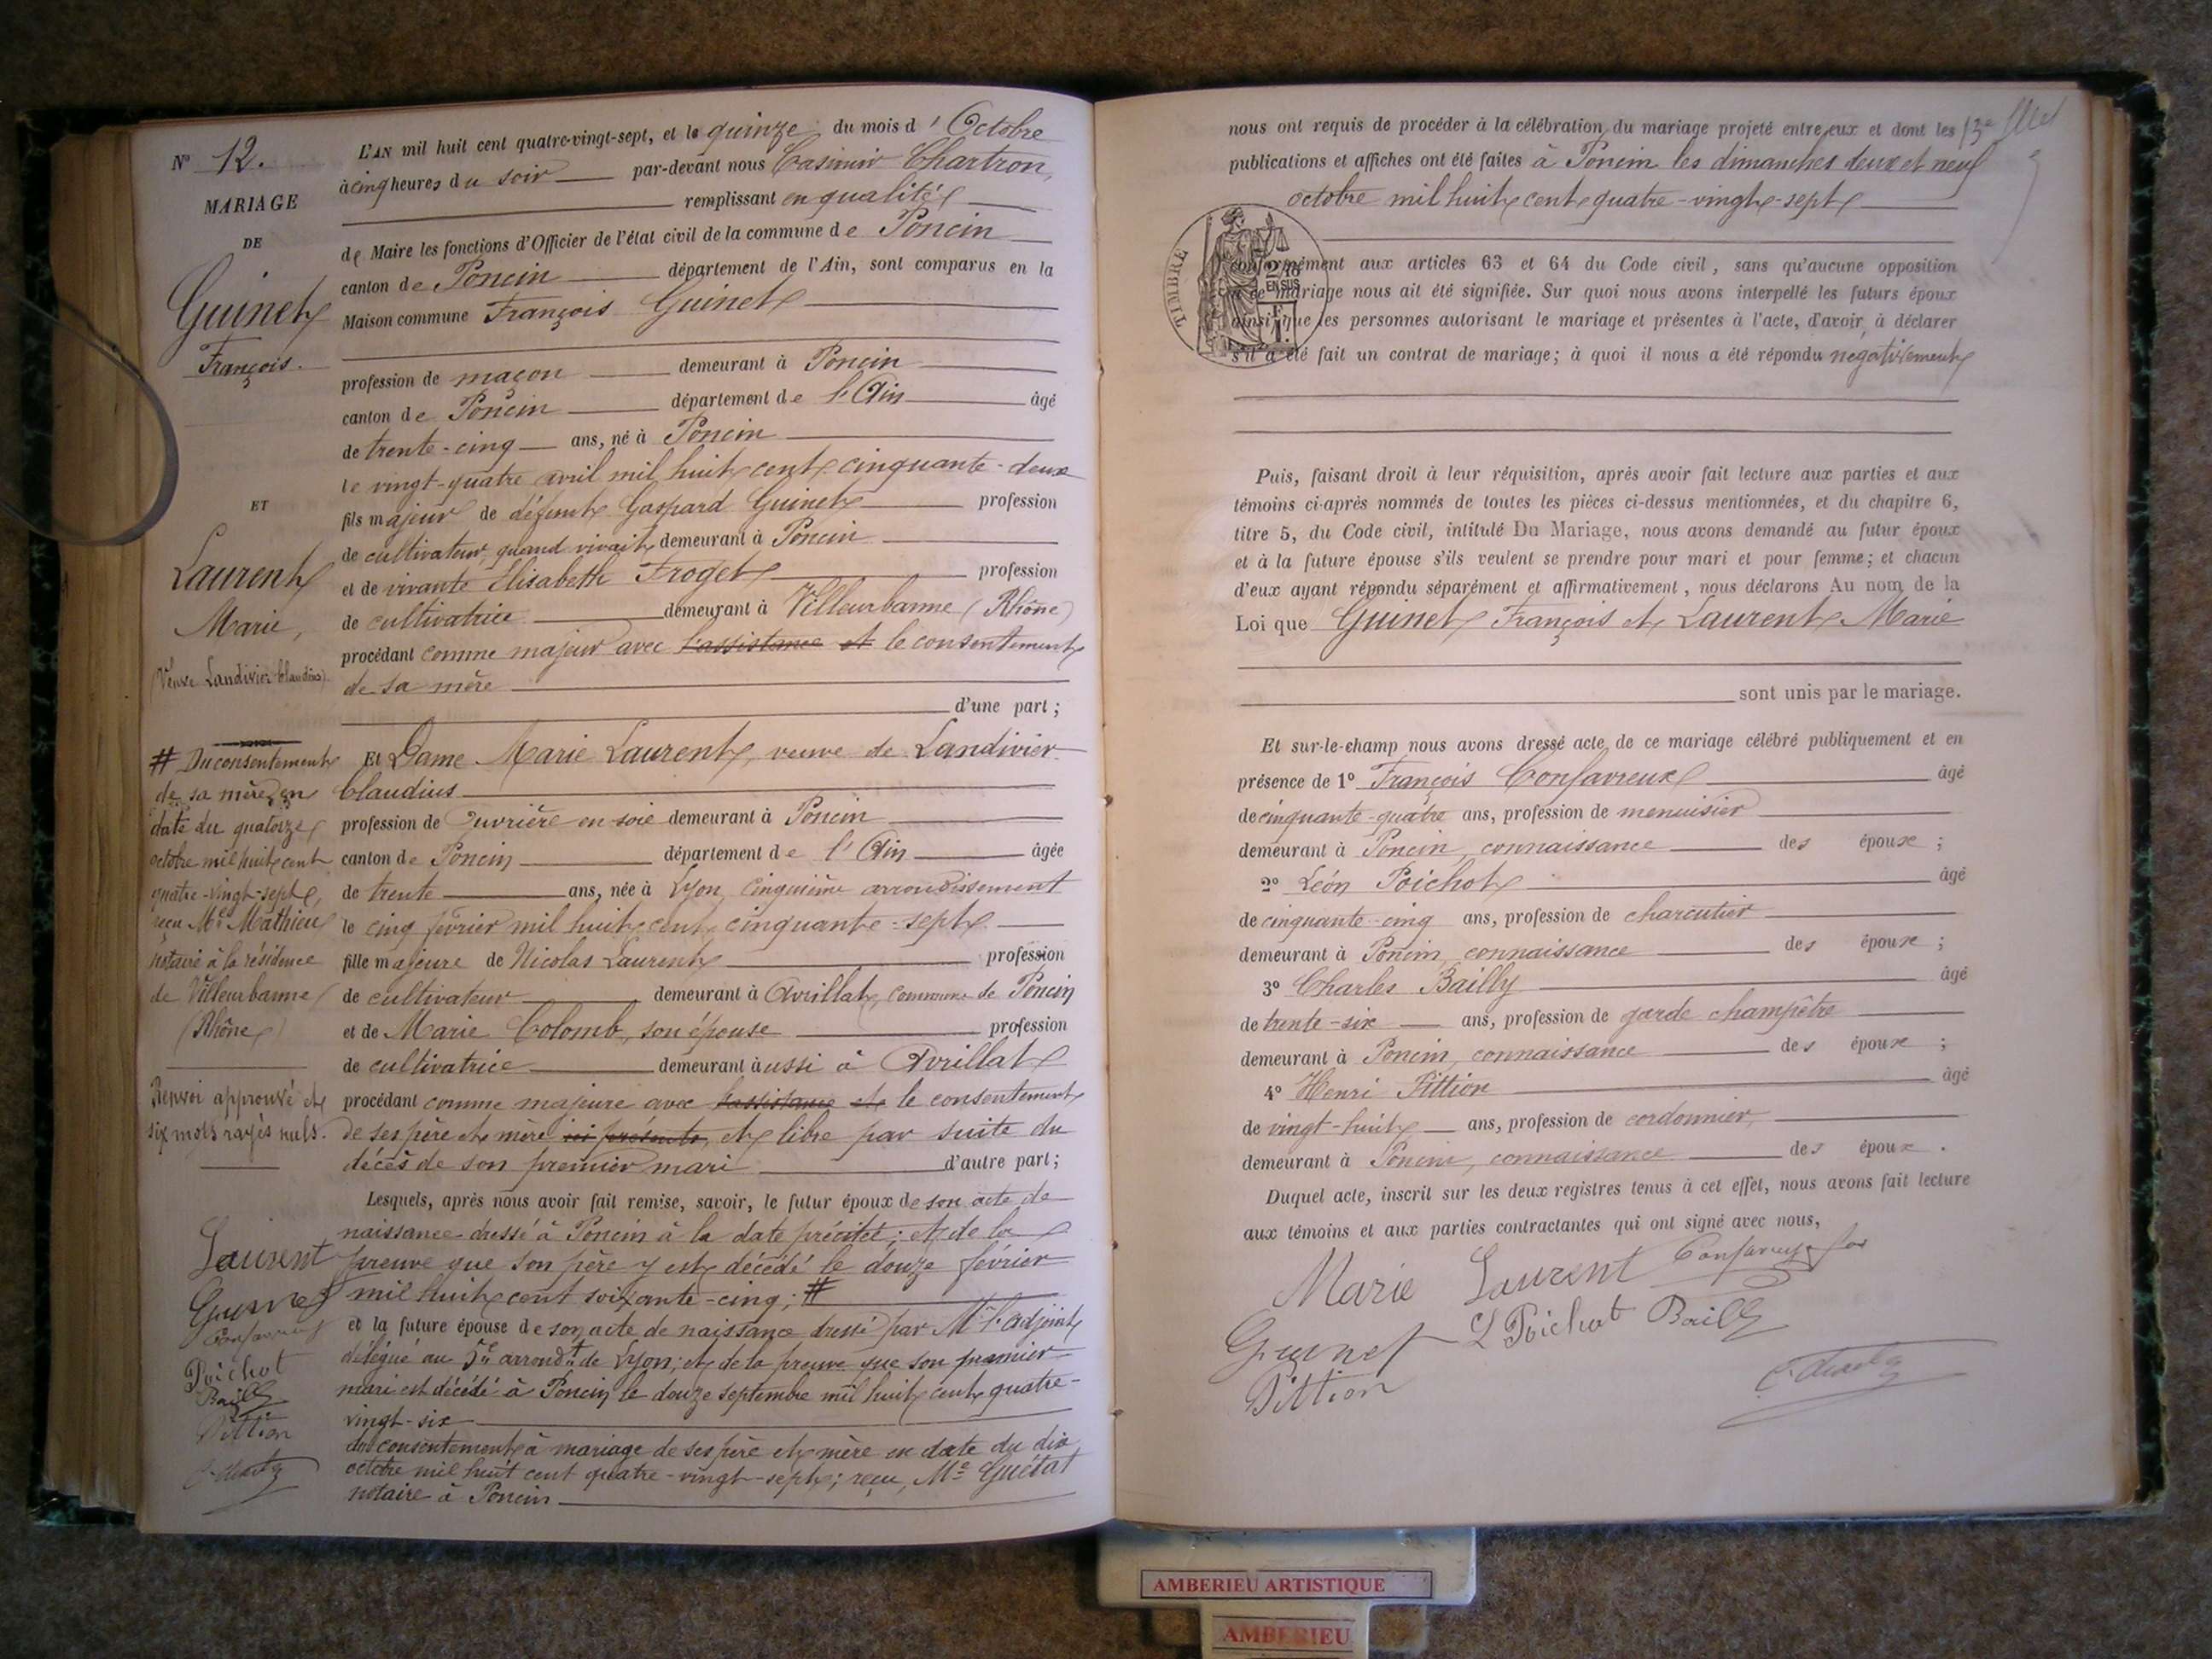 N° 12.
MARIAGE
DE
Guinet
François.
ET
Laurent
Marie,
(Veuve Landivier Claudius)
# Du consentement
de sa mère, en
date du quatorze
octobre mil huit cent
quatre-vingt-sept,
reçu Me Mathieu
notaire à la résidence
de Villeurbanne
(Rhône)
Renvoi approuvé et
six mots rayés nuls.
Laurent
Guinet
Confavreux
Poichot
Bailly
Pittion
L'AN mil huit cent quatre-vingt-sept, et le quinze du mois d'Octobre
à cinq heures du soir par-devant nous Casimir Chartron,
remplissant en qualité
de Maire les fonctions d'Officier de l'état civil de la commune de Poncin
canton de Poncin département de l'Ain, sont comparus en la
Maison commune François Guinet
profession de maçon demeurant à Poncin
canton de Poncin département de l'Ain âgé
de trente-cinq ans, né à Poncin
le vingt-quatre avril mil huit cent cinquante-deux
fils majeur de défunt Gaspard Guinet profession
de cultivateur, quand vivait, demeurant à Poncin
et de vivante Élisabeth Froget profession
de cultivatrice demeurant à Villeurbanne (Rhône)
procédant comme majeur avec l'assistance et le consentement
de sa mère
d'une part;
Et Dame Marie Laurent, veuve de Landivier
Claudius
profession de Ouvrière en soie demeurant à Poncin
canton de Poncin département de l'Ain âgée
de trente ans, née à Lyon, Cinquième arrondissement
le cinq février mil huit cent cinquante-sept
fille majeure de Nicolas Laurent profession
de cultivateur demeurant à Avrillat, commune de Poncin
et de Marie Colomb, son épouse profession
de cultivatrice demeurant aussi à Avrillat
procédant comme majeure avec l'assistance et le consentement
de ses père et mère ici présents, et libre par suite du
décès de son premier mari d'autre part;
Lesquels, après nous avoir fait remise, savoir, le futur époux de son acte de
naissance dressé à Poncin à la date précitée; et de la
preuve que son père y est décédé le douze février
mil huit cent soixante-cinq; #
et la future épouse de son acte de naissance dressé par Mr l'adjoint
délégué au 5e arrondt de Lyon; et de la preuve que son premier
mari est décédé à Poncin le douze septembre mil huit cent quatre-
vingt-six
du consentement à mariage de ses père et mère en date du dix
octobre mil huit cent quatre-vingt-sept; reçu, Me Guétat
notaire à Poncin
nous ont requis de procéder à la célébration du mariage projeté entre eux et dont les
publications et affiches ont été faites à Poncin les dimanches deux et neuf
octobre mil huit cent quatre-vingt-sept
TIMBRE
conformément aux articles 63 et 64 du Code civil, sans qu'aucune opposition
à ce mariage nous ait été signifiée. Sur quoi nous avons interpellé les futurs époux
ainsi que les personnes autorisant le mariage et présentes à l'acte, d'avoir à déclarer
s'il a été fait un contrat de mariage; à quoi il nous a été répondu négativement
Puis, faisant droit à leur réquisition, après avoir fait lecture aux parties et aux
témoins ci-après nommés de toutes les pièces ci-dessus mentionnées, et du chapitre 6,
titre 5, du Code civil, intitulé Du Mariage, nous avons demandé au futur époux
et à la future épouse s'ils veulent se prendre pour mari et pour femme; et chacun
d'eux ayant répondu séparément et affirmativement, nous déclarons Au nom de la
Loi que Guinet François et Laurent Marie
sont unis par le mariage.
Et sur-le-champ nous avons dressé acte de ce mariage célébré publiquement et en
présence de 1° François Confavreux âgé
de cinquante-quatre ans, profession de menuisier
demeurant à Poncin, connaissance des époux;
2° Léon Poichot âgé
de cinquante-cinq ans, profession de charcutier
demeurant à Poncin, connaissance des époux;
3° Charles Bailly âgé
de trente-six ans, profession de garde champêtre
demeurant à Poncin, connaissance des époux;
4° Henri Pittion âgé
de vingt-huit ans, profession de cordonnier,
demeurant à Poncin, connaissance des époux.
Duquel acte, inscrit sur les deux registres tenus à cet effet, nous avons fait lecture
aux témoins et aux parties contractantes qui ont signé avec nous,
Marie Laurent Confavreux
Guinet L Poichot Bailly
Pittion
AMBERIEU ARTISTIQUE
AMBERIEU